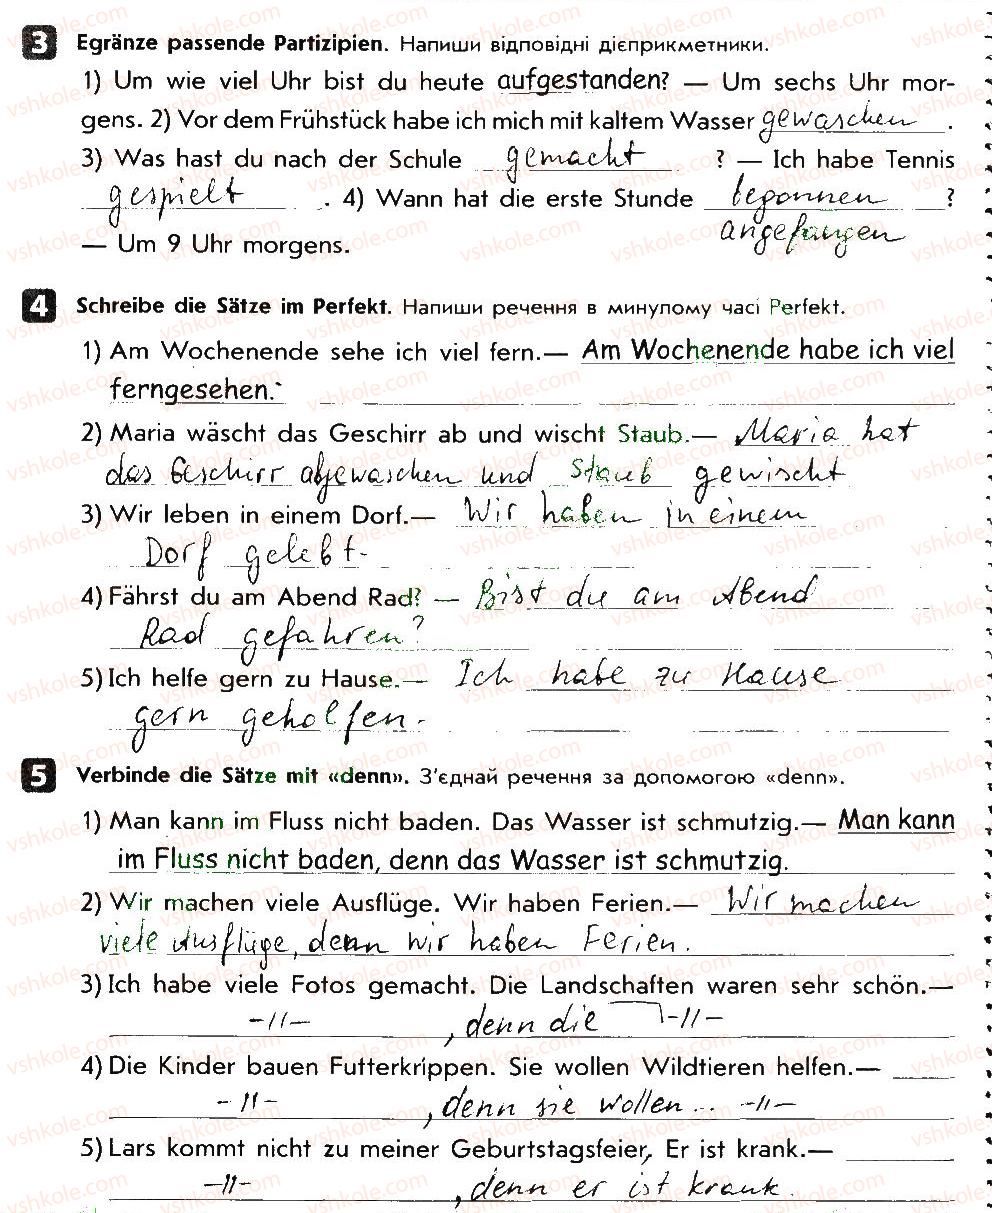 3 Egränze passende Partizipien. Напиши відповідні дієприкметники.
1) Um wie viel Uhr bist du heute aufgestanden? — Um sechs Uhr mor-
gens. 2) Vor dem Frühstück habe ich mich mit kaltem Wasser gewaschen.
3) Was hast du nach der Schule gemacht ? — Ich habe Tennis
gespielt. 4) Wann hat die erste Stunde begonnen ?
angefangen
— Um 9 Uhr morgens.
4 Schreibe die Sätze im Perfekt. Напиши речення в минулому часі Perfekt.
1) Am Wochenende sehe ich viel fern.— Am Wochenende habe ich viel
ferngesehen.
2) Maria wäscht das Geschirr ab und wischt Staub.— Maria hat
das Geschirr abgewaschen und Staub gewischt
3) Wir leben in einem Dorf.— Wir haben in einem
Dorf gelebt.
4) Fährst du am Abend Rad? — Bist du am Abend
Rad gefahren?
5) Ich helfe gern zu Hause.— Ich habe zu Hause
gern geholfen.
5 Verbinde die Sätze mit «denn». З'єднай речення за допомогою «denn».
1) Man kann im Fluss nicht baden. Das Wasser ist schmutzig.— Man kann
im Fluss nicht baden, denn das Wasser ist schmutzig.
2) Wir machen viele Ausflüge. Wir haben Ferien.— Wir machen
viele Ausflüge, denn wir haben Ferien.
3) Ich habe viele Fotos gemacht. Die Landschaften waren sehr schön.—
-//- , denn die -//-
4) Die Kinder bauen Futterkrippen. Sie wollen Wildtieren helfen.—
-//- , denn sie wollen... -//-
5) Lars kommt nicht zu meiner Geburtstagsfeier, Er ist krank.—
-//- , denn er ist krank.